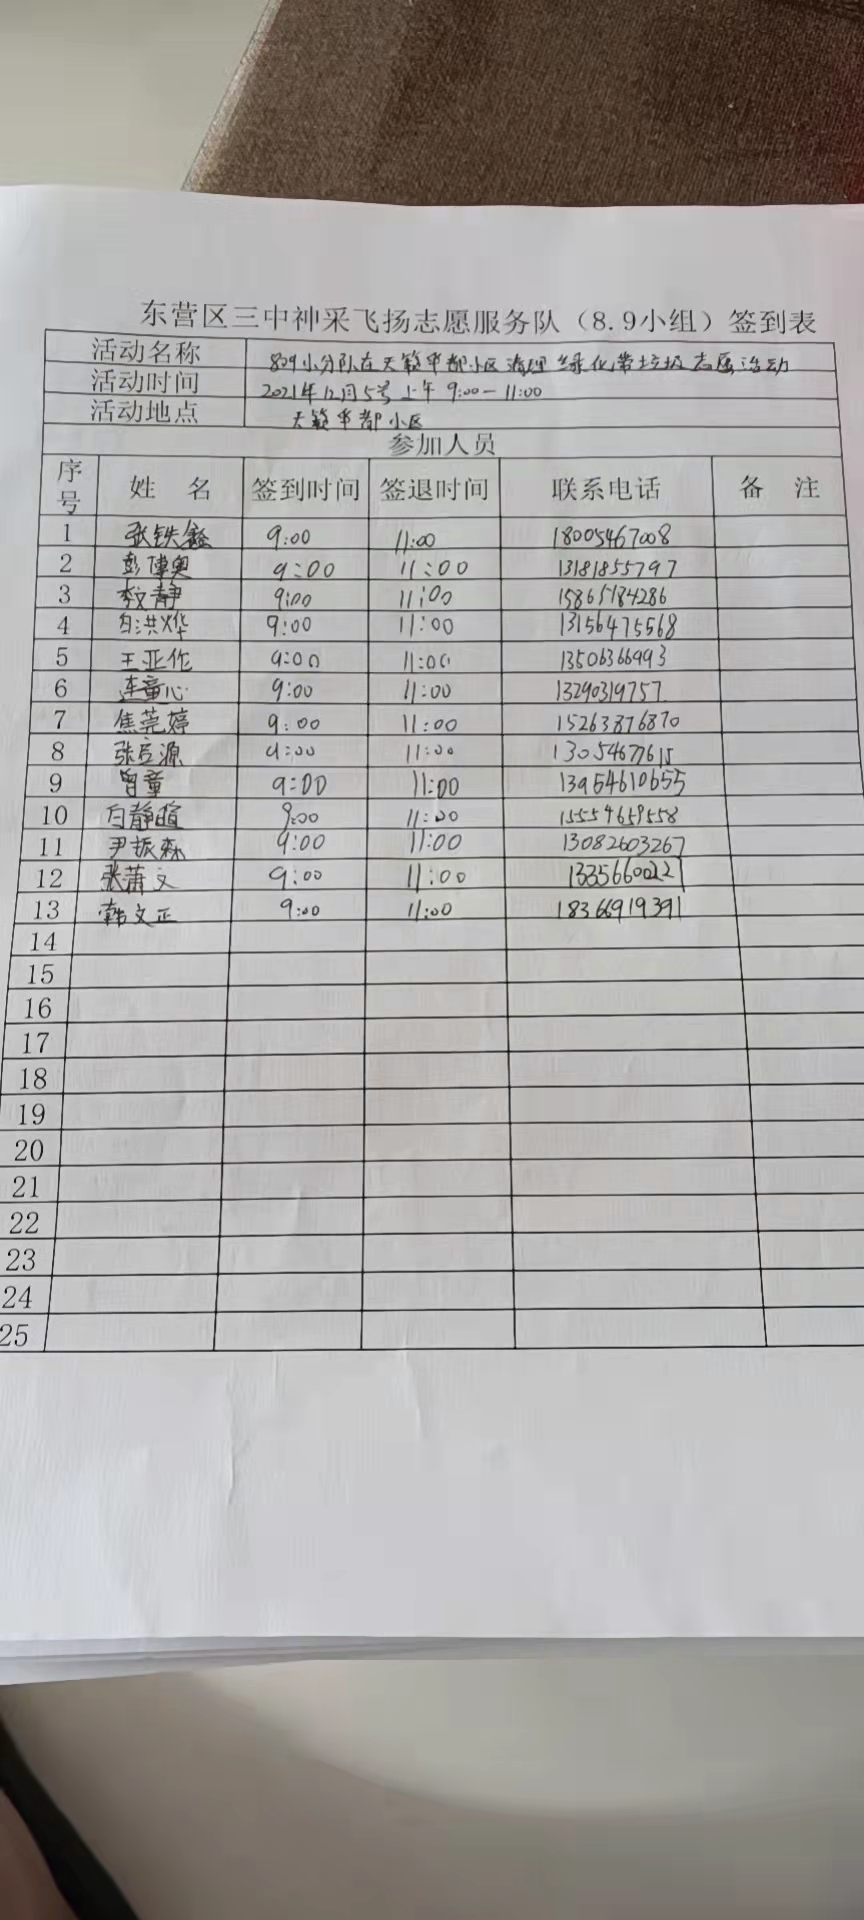 东营区三中神采飞扬志愿服务队（8.9小组）签到表
活动名称 809小分队在天籁华都小区清理绿化带垃圾志愿活动
活动时间 2021年12月5号上午 9:00-11:00
活动地点 天籁华都小区
参加人员
序号 姓 名 签到时间 签退时间 联系电话 备 注
1 张铁鑫 9:00 11:00 18005467008
2 彭博奥 9:00 11:00 13181855797
3 李文静 9:00 11:00 15865184286
4 白洪烨 9:00 11:00 13156475568
5 王亚作 9:00 11:00 13506366993
6 连童心 9:00 11:00 13290319757
7 焦莞婷 9:00 11:00 15263876870
8 张源 9:00 11:00 13054677615
9 曾童 9:00 11:00 13954610655
10 白静暄 9:00 11:00 15554659558
11 尹振森 9:00 11:00 13082603267
12 张萧文 9:00 11:00 13356600221
13 韩文正 9:00 11:00 18366919391
14
15
16
17
18
19
20
21
22
23
24
25